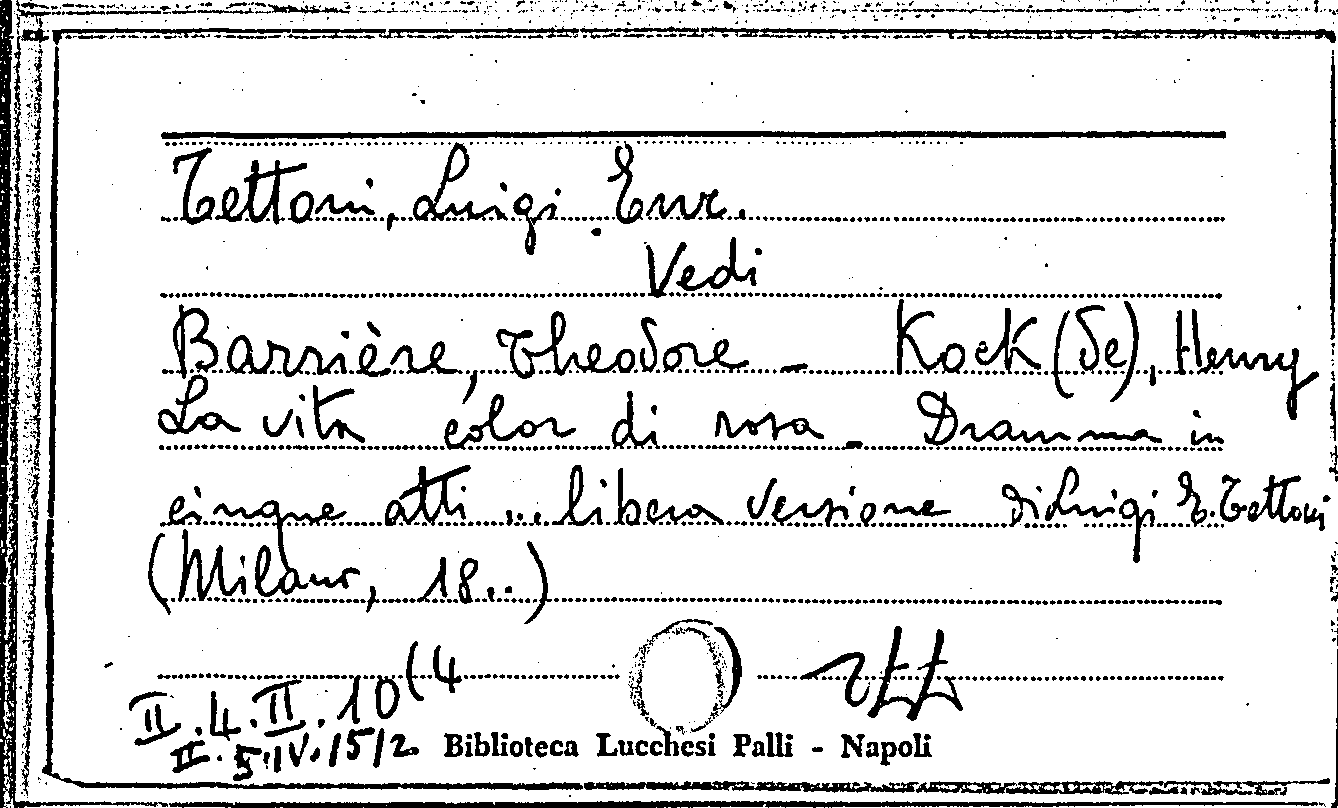 Tettoni, Luigi Enr.
Vedi
Barrière, Theodore - Kock (de), Henry
La vita color di rosa - Dramma in
cinque atti ... libera versione di Luigi E. Tettoni
(Milano, 18..)
II.4.II.10(4
II.5.IV.15/2
Biblioteca Lucchesi Palli - Napoli